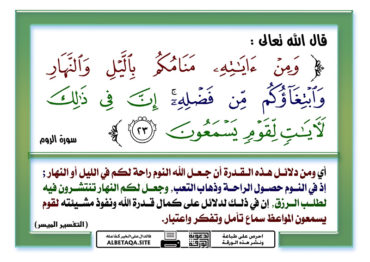 قال الله تعالى :
﴿ وَمِنْ ءَايَـٰتِهِۦ مَنَامُكُم بِٱلَّيْلِ وَٱلنَّهَارِ
وَٱبْتِغَآؤُكُم مِّن فَضْلِهِۦٓ ۚ إِنَّ فِى ذَٰلِكَ
لَـَٔايَـٰتٍ لِّقَوْمٍ يَسْمَعُونَ ٢٣ ﴾ سورة الروم
أي ومن دلائل هذه القدرة أن جعل الله النوم راحة لكم في الليل أو النهار؛
إذ في النوم حصول الراحة وذهاب التعب، وجعل لكم النهار تنتشرون فيه
لطلب الرزق، إن في ذلك لدلائل على كمال قدرة الله ونفوذ مشيئته لقوم
يسمعون المواعظ سماع تأمل وتفكر واعتبار.
(التفسير الميسر)
احرص على طباعة
ونشر هذه الورقة
فالدال على الخير كفاعله
ALBETAQA.SITE